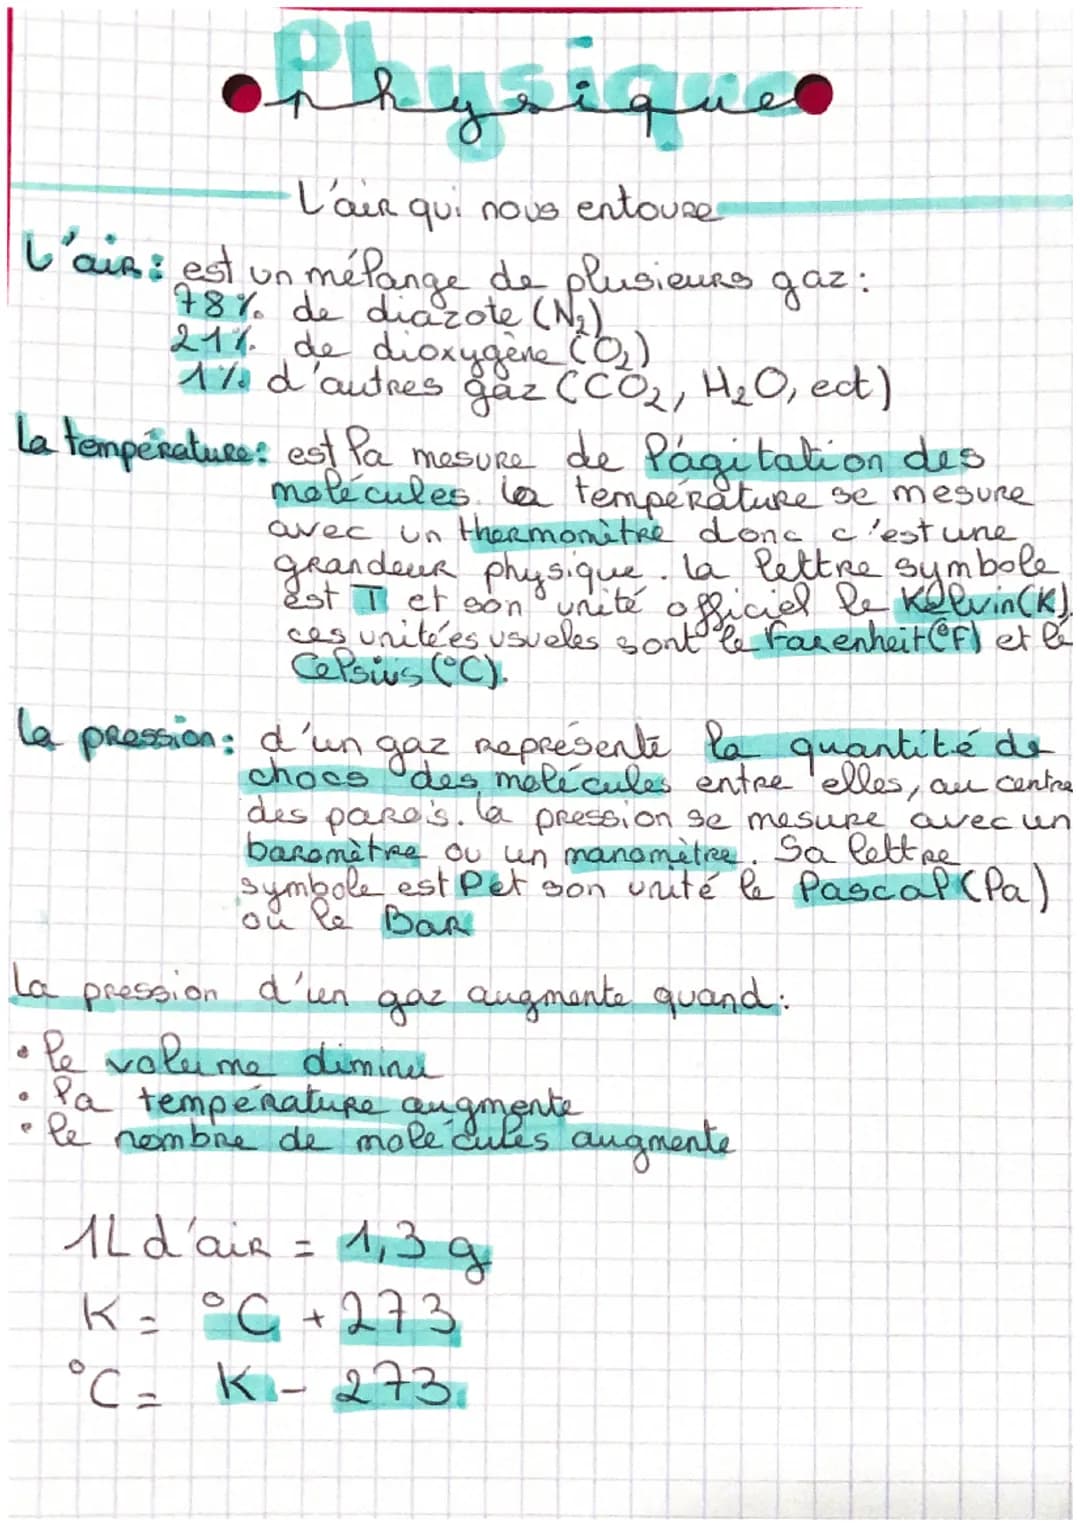 Physique
physique
L'air qui nous entoure
L'air : est un mélange de plusieurs gaz :
78% de diazote (N₂)
21% de dioxygène (O₂)
1% d'autres gaz (CO₂, H₂O, ect)
La température : est la mesure de l'agitation des
molécules. la température se mesure
avec un thermomètre donc c'est une
grandeur physique. la lettre symbole
est T et son unité officiel le Kelvin(K).
ces unitées usueles sont le Farenheit(°F) et le
Celsius (°C).
La pression : d'un gaz représente la quantité de
chocs des molécules entre elles, au centre
des parois. la pression se mesure avec un
baromètre ou un manomètre. Sa lettre
symbole est P et son unité le Pascal (Pa)
ou le Bar
La pression d'un gaz augmente quand :
• le volume diminu
• la température augmente
• le nombre de molécules augmente
1L d'air = 1,3 g
K = °C + 273
°C = K - 273